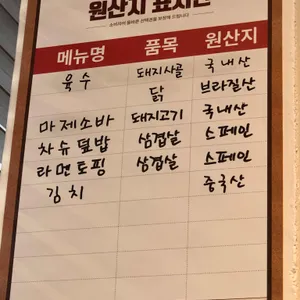 원산지 표시판
메뉴명 품목 원산지
육수 돼지사골 국내산
닭 브라질산
마제소바 돼지고기 국내산
차슈덮밥 삼겹살 스페인
라면토핑 삼겹살 스페인
김치 중국산